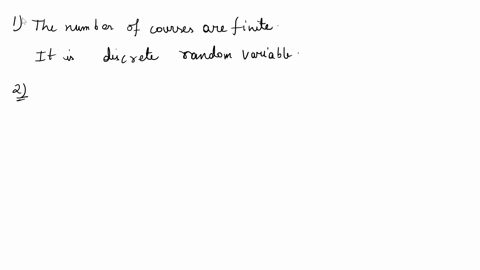 1) The number of courses are finite.
It is discrete random variable.
2)